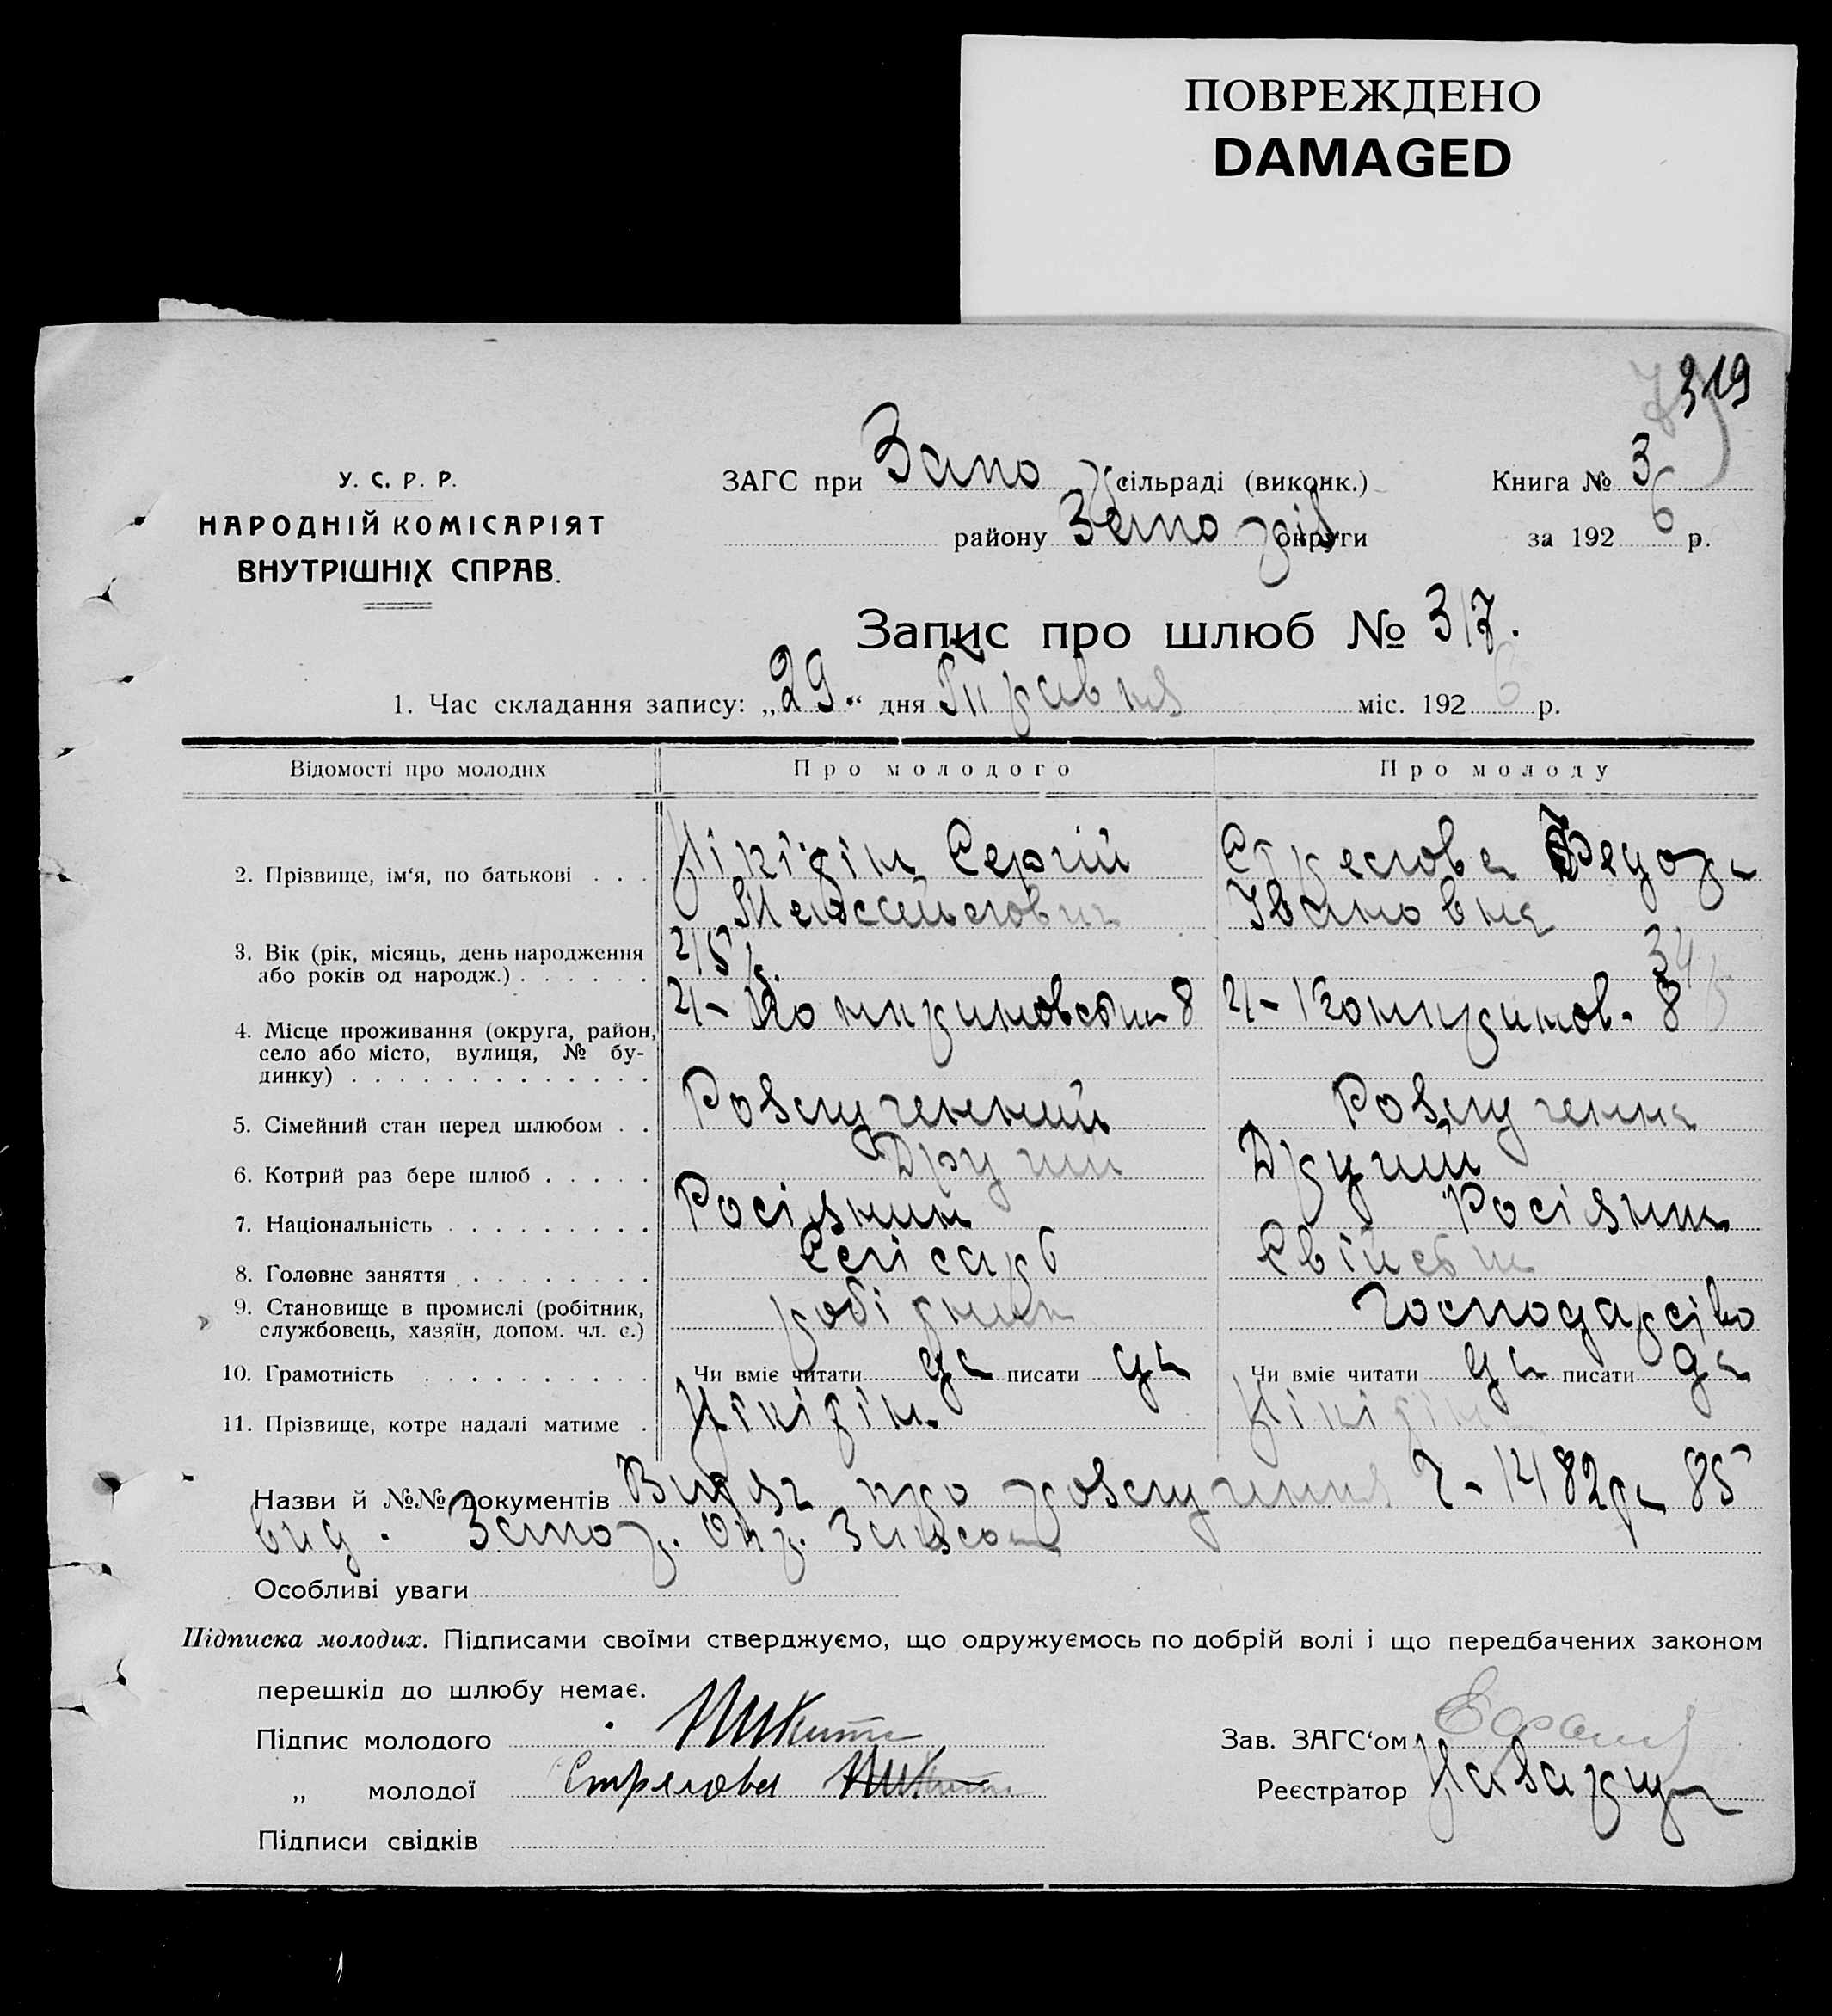 ПОВРЕЖДЕНО
DAMAGED
319
У. С. Р. Р.
НАРОДНІЙ КОМІСАРІЯТ
ВНУТРІШНІХ СПРАВ.
ЗАГС при Запо сільраді (виконк.)
Книга № 3
району Запо округи
за 1926 р.
Запис про шлюб № 317.
1. Час складання запису: „29“ дня Травня міс. 1926 р.
Відомості про молодих
Про молодого
Про молоду
2. Прізвище, ім‘я, по батькові . . .
Нікітін Сергій
Івановна
3. Вік (рік, місяць, день народження
або років од народж.) . . . . . .
34
4. Місце проживання (округа, район,
село або місто, вулиця, № бу-
динку) . . . . . . . . . . . . .
5. Сімейний стан перед шлюбом . .
Розлученний
Розлученна
6. Котрий раз бере шлюб . . . . .
Другий
Другий
7. Національність . . . . . . . . .
Росіянин
Росіянка
8. Головне заняття . . . . . . . .
Слісарь
9. Становище в промислі (робітник,
службовець, хазяїн, допом. чл. є.)
робітник
господарство
10. Грамотність . . . . . . . . . .
Чи вміє читати да писати да
Чи вміє читати да писати да
11. Прізвище, котре надалі матиме .
Нікітін
Нікітін
Назви й №№ документів Витяг про розлучення 85
вид. Запор. Окр. Загсом
Особливі уваги
Підписка молодих. Підписами своїми стверджуємо, що одружуємось по добрій волі і що передбачених законом
перешкід до шлюбу немає.
Підпис молодого Никитин
Зав. ЗАГС‘ом
„ молодої Стрелова
Реєстратор
Підписи свідків